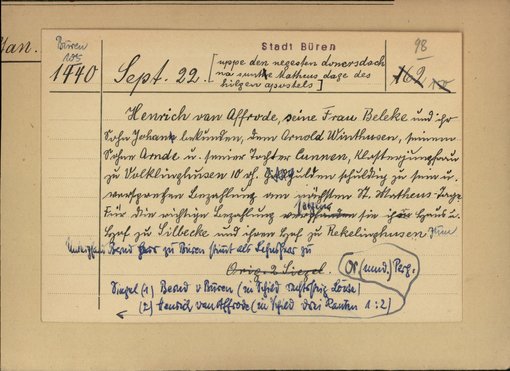 Han.
Büren
105
1440 Sept. 22.
Stadt Büren
[uppe den negesten donersdach
na sunte Matheus dage des
hilgen apostels]
98
162
Henrich van Affrode, seine Frau Beleke und ihr
Sohn Johan bekunden, dem Arnold Winthusen, seinem
Sohne Arnde u. seiner Tochter Cunnen, Klosterjungfrau
zu Volklinghusen 10 rh. Goldgulden schuldig zu sein u.
versprechen Bezahlung am nächsten St. Matheus-Tage.
Für die richtige Bezahlung setzen sie ihr Haus u.
Hof zu Silbecke und ihren Hof zu Rekelinghusen zum
Unterpfand Bernd Herr zu Büren stimt als Lehnsherr zu
Orig. 2 Siegel. Or. (mnd.) Perg.
Siegel (1) Bernd v Büren (in Schild rechtshin Löwe)
(2) Henrich van Affrode (in Schild drei Rauten 1:2)